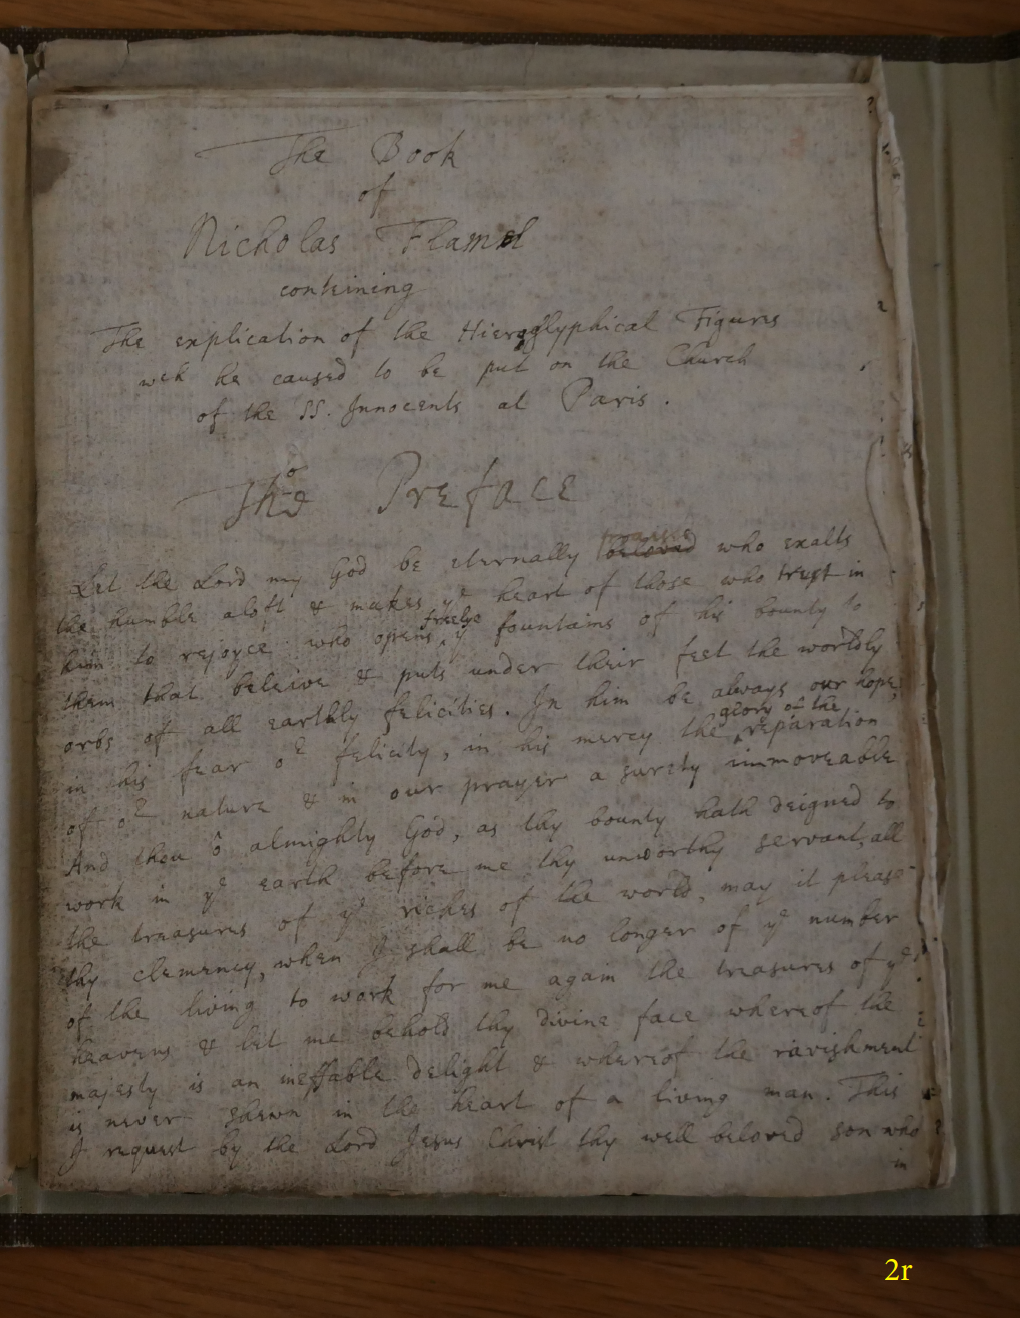 The Book
of
Nicholas Flamel
conteining
The explication of the Hieroglyphical Figures
wch he caused to be put on the Church
of the SS. Innocents at Paris.
The Preface
Let the Lord my God be eternally praised who exalts
the humble aloft & makes ye heart of those who trust in
him to rejoyce who opens freely ye fountains of his bounty to
them that beleive & puts under their feet the worldly
orbs of all earthly felicities. In him be always our hope,
in his fear or felicity, in his mercy the glory of the reparation
of or nature & in our prayer a surety immoveable
And thou ô almighty God, as thy bounty hath deigned to
work in ye earth before me thy unworthy servant, all
the treasures of ye riches of the world, may it please
thy clemency, when I shall be no longer of ye number
of the living to work for me again the treasures of ye
heavens & let me behold thy divine face whereof the
majesty is an ineffable delight & whereof the ravishment
is never shewn in the heart of a living man. This
I request by the Lord Jesus Christ thy well beloved son who
in
2r